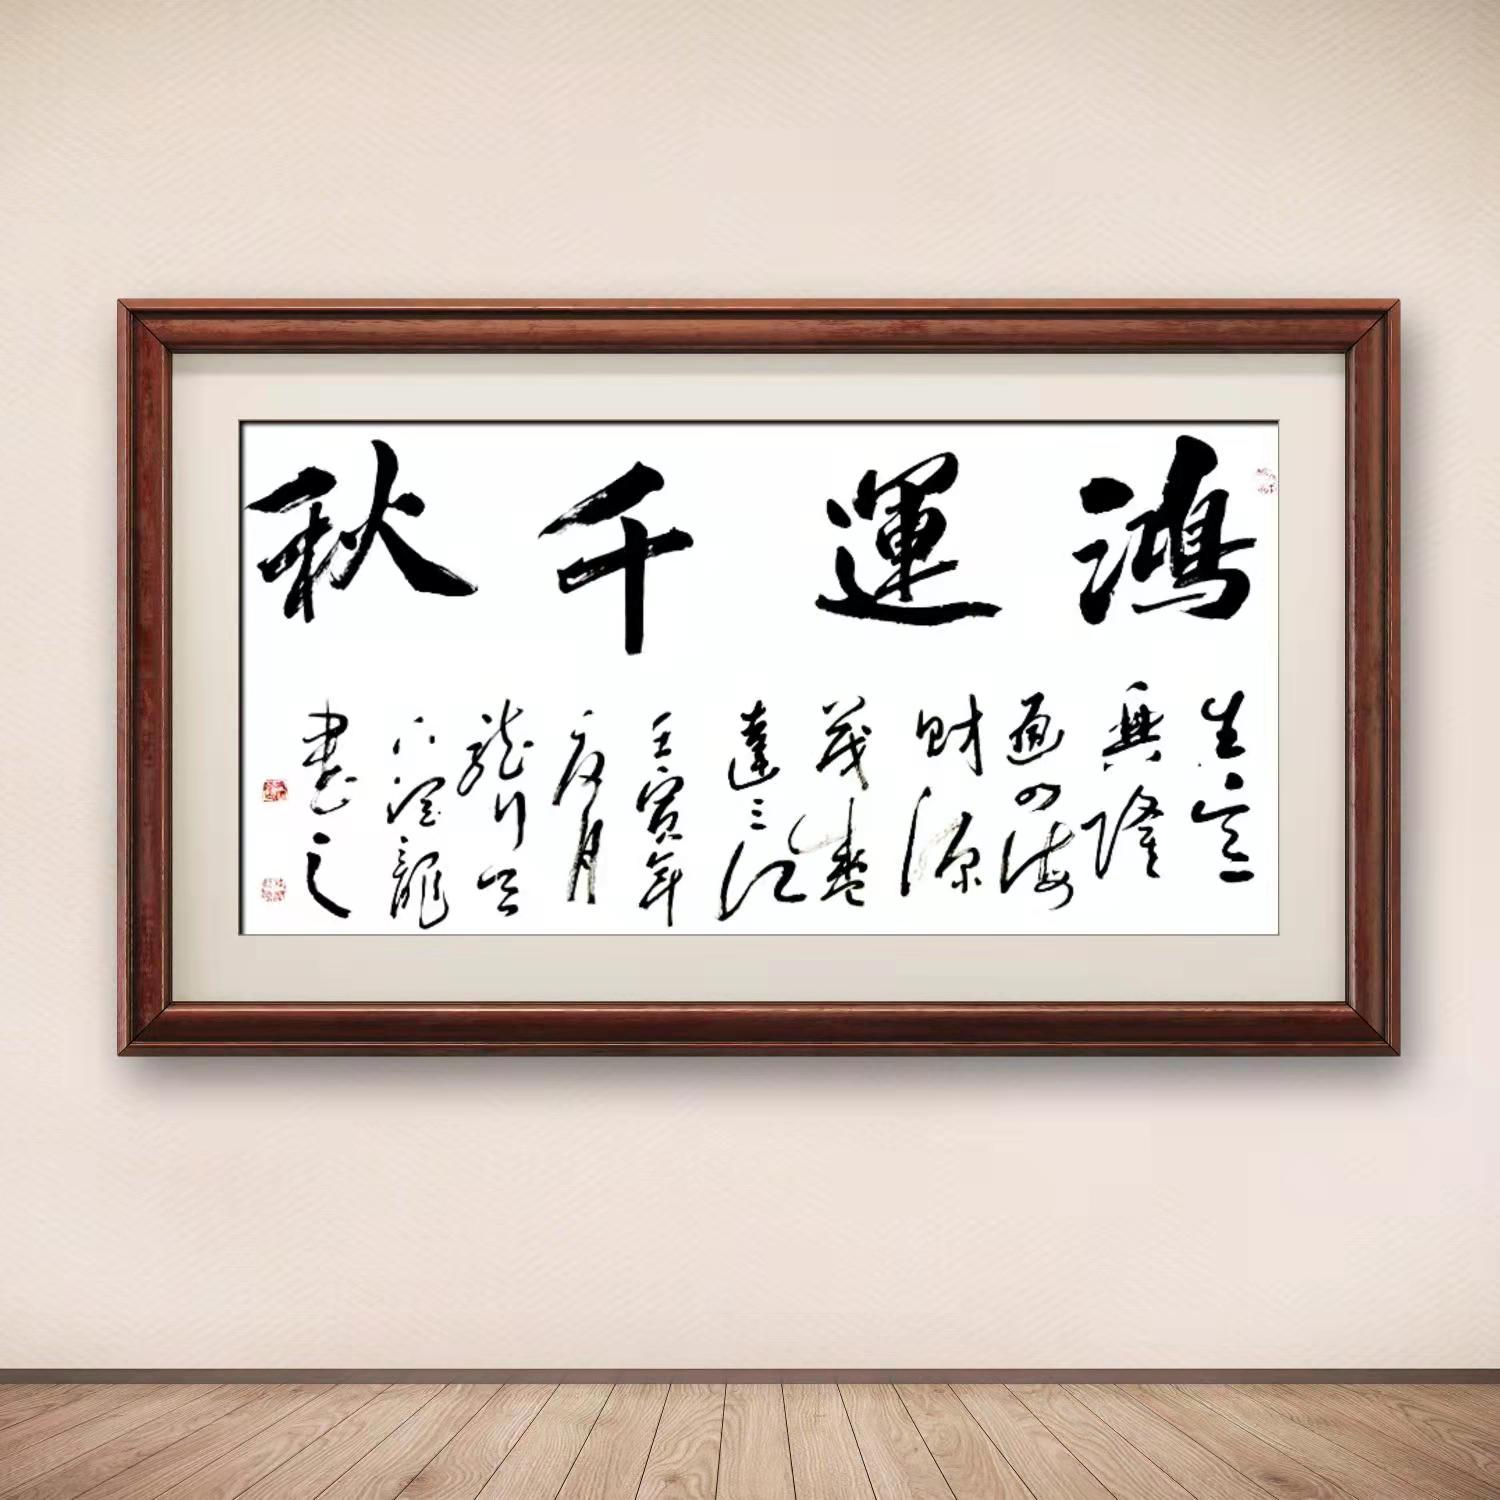 鴻運千秋
生意
興隆
通四海
財源
茂盛
達三江
壬寅年
月
書之